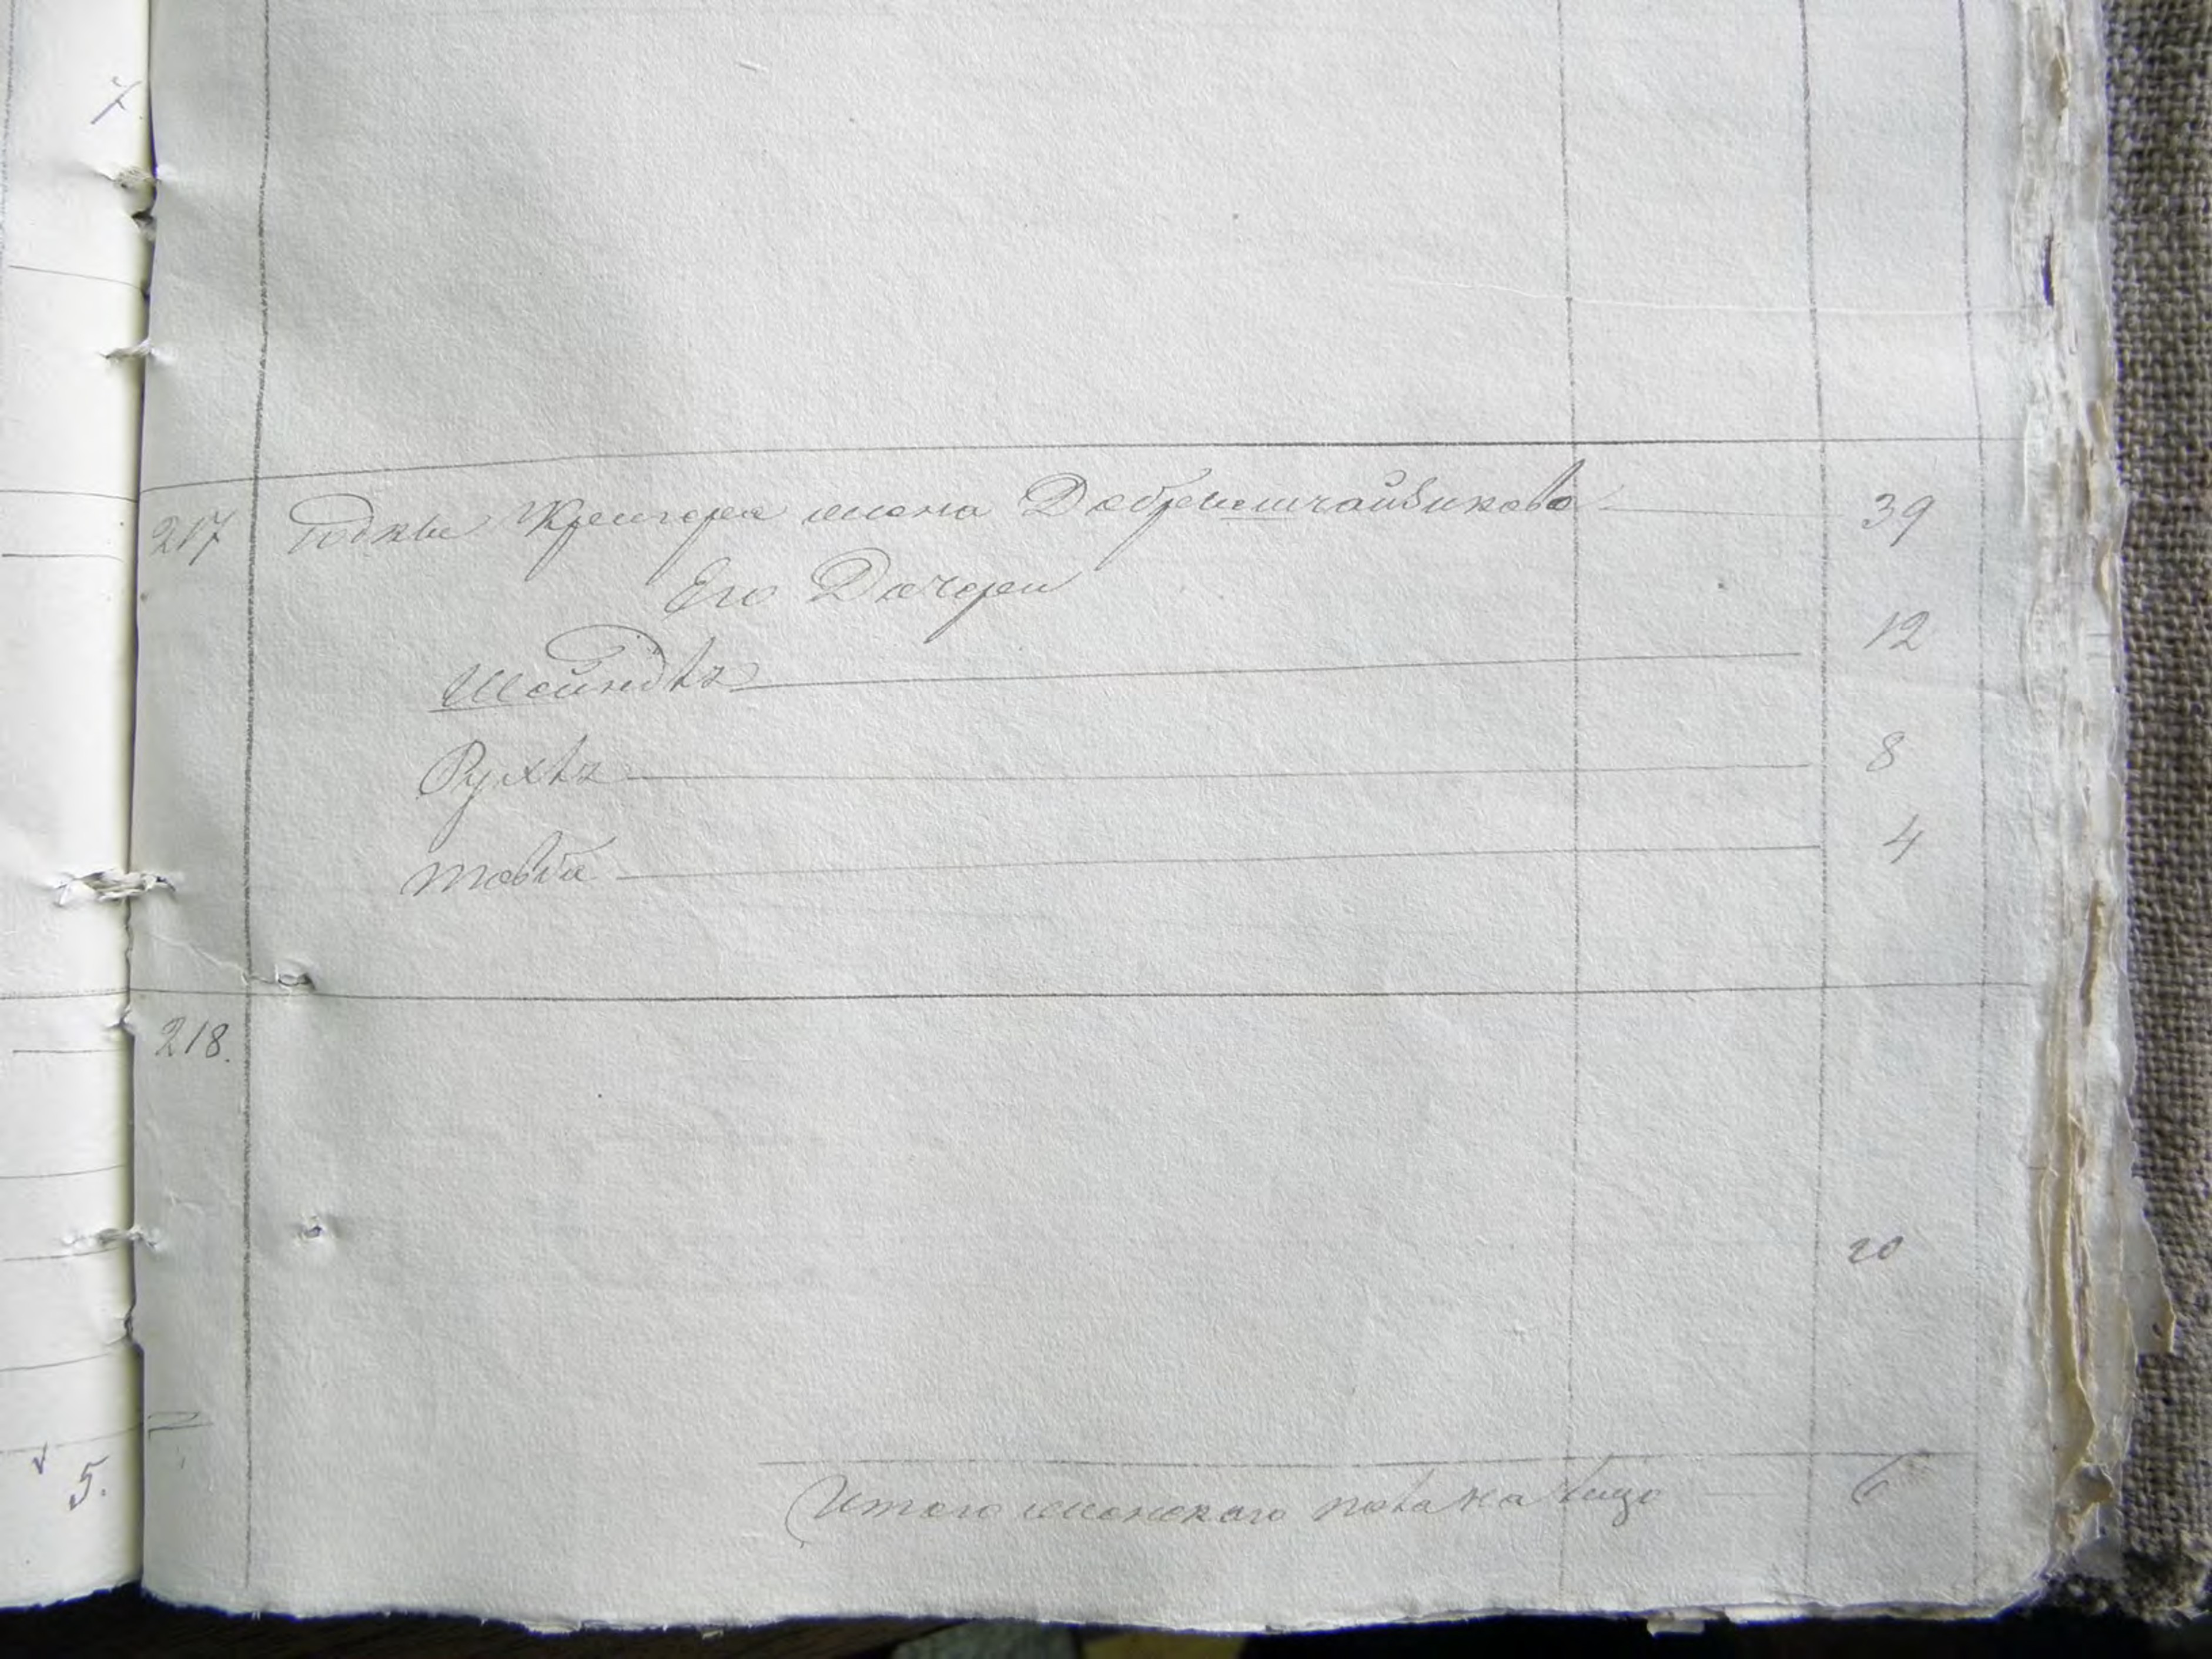 7
217 Годки Крейгера жена Добришчайвикова 39
Его Дочери
Шейндъ 12
Рухъ 8
Товби 4
218.
20
5.
Итого женскаго пола на лицо 6